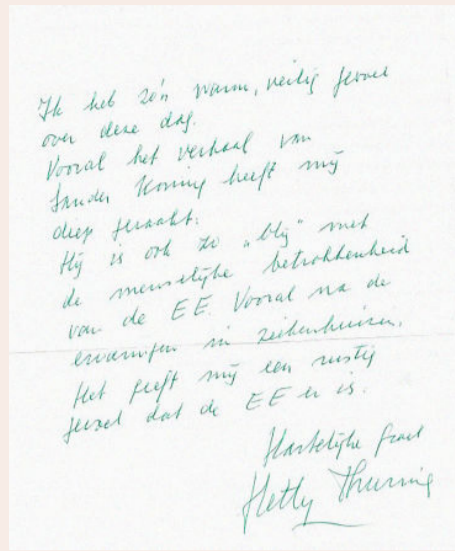 Ik heb zo'n warm, veilig gevoel
over deze dag.
Vooral het verhaal van
Sander Koning heeft mij
diep geraakt.
Hij is ook zo „blij" met
de menselijke betrokkenheid
van de EE. Vooral na de
ervaringen in ziekenhuizen.
Het geeft mij een rustig
gevoel dat de EE er is.
Hartelijke groet
Hetty Thuring